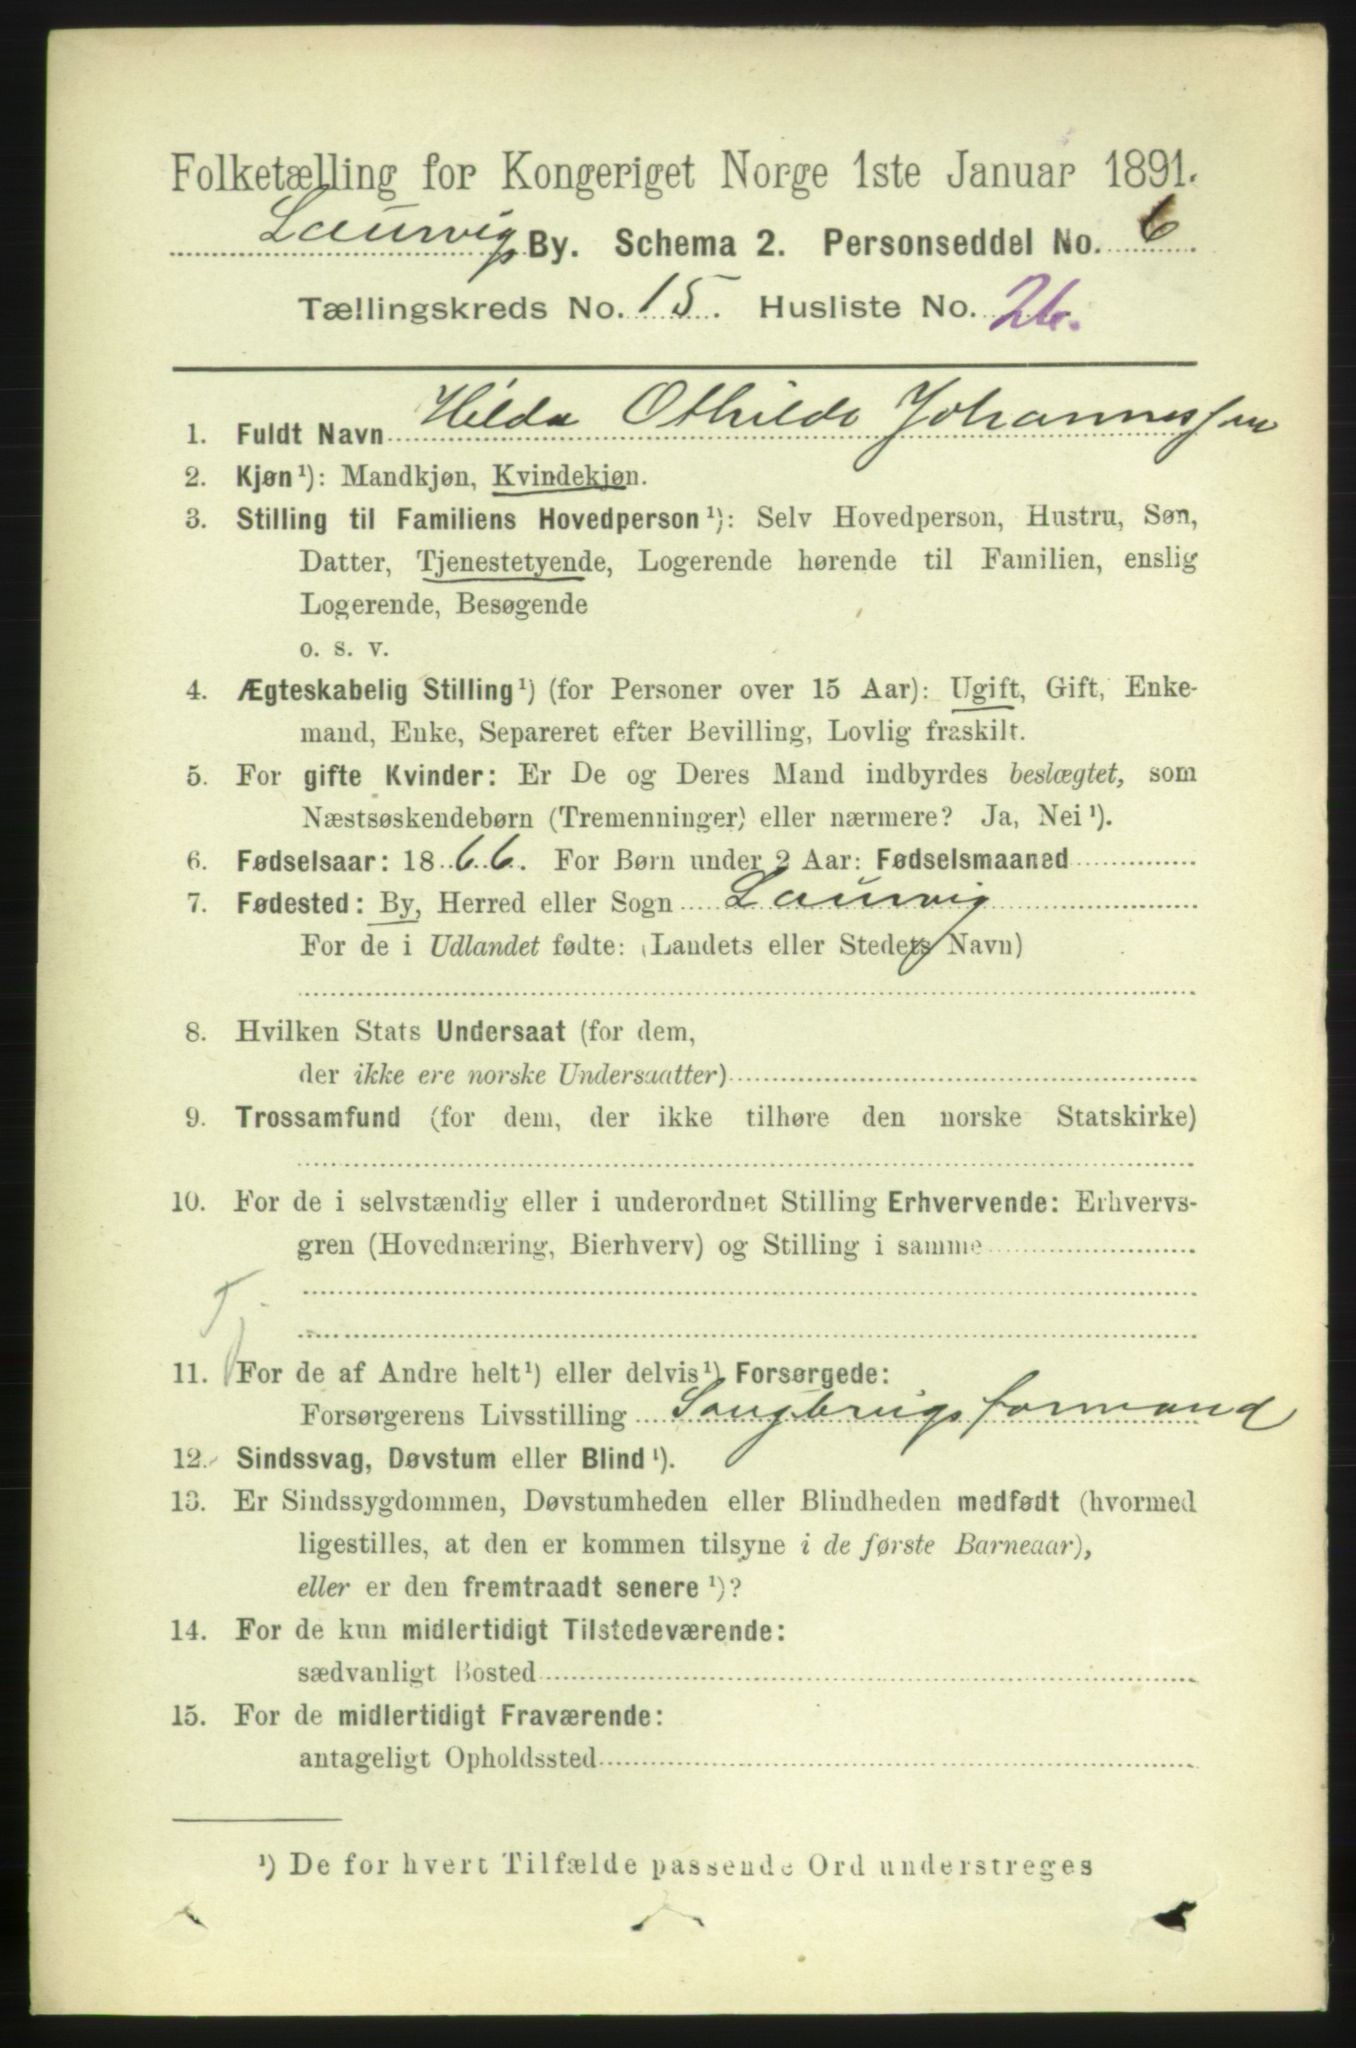 Folketælling for Kongeriget Norge 1ste Januar 1891.
Laurvig By. Schema 2. Personseddel No. 6
Tællingskreds No. 15. Husliste No. 26.
1. Fuldt Navn Hilda Othilde Johannessen
2. Kjøn¹): Mandkjøn, Kvindekjøn.
3. Stilling til Familiens Hovedperson¹): Selv Hovedperson, Hustru, Søn,
Datter, Tjenestetyende, Logerende hørende til Familien, enslig
Logerende, Besøgende
o. s. v.
4. Ægteskabelig Stilling¹) (for Personer over 15 Aar): Ugift, Gift, Enke-
mand, Enke, Separeret efter Bevilling, Lovlig fraskilt.
5. For gifte Kvinder: Er De og Deres Mand indbyrdes beslægtet, som
Næstsøskendebørn (Tremenninger) eller nærmere? Ja, Nei¹).
6. Fødselsaar: 1866. For Børn under 2 Aar: Fødselsmaaned
7. Fødested: By, Herred eller Sogn Laurvig
For de i Udlandet fødte: (Landets eller Stedets Navn)
8. Hvilken Stats Undersaat (for dem,
der ikke ere norske Undersaatter)
9. Trossamfund (for dem, der ikke tilhøre den norske Statskirke)
10. For de i selvstændig eller i underordnet Stilling Erhvervende: Erhvervs-
gren (Hovednæring, Bierhverv) og Stilling i samme
Tj
11. For de af Andre helt¹) eller delvis¹) Forsørgede:
Forsørgerens Livsstilling Saugbrugsformand
12. Sindssvag, Døvstum eller Blind¹).
13. Er Sindssygdommen, Døvstumheden eller Blindheden medfødt (hvormed
ligestilles, at den er kommen tilsyne i de første Barneaar),
eller er den fremtraadt senere¹)?
14. For de kun midlertidigt Tilstedeværende:
sædvanligt Bosted
15. For de midlertidigt Fraværende:
antageligt Opholdssted
¹) De for hvert Tilfælde passende Ord understreges